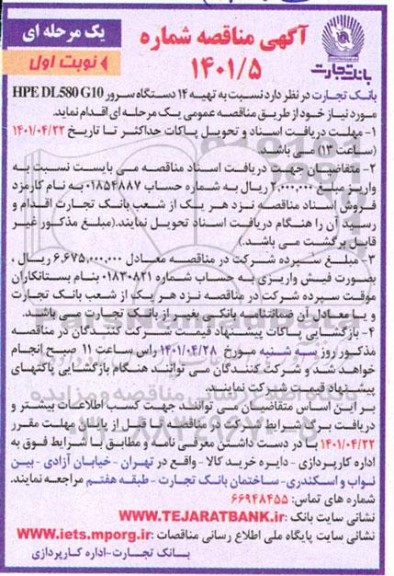 آگهی مناقصه شماره
۱۴۰۱/۵
یک مرحله ای
نوبت اول
بانک تجارت
بانک تجارت در نظر دارد نسبت به تهیه ۱۴ دستگاه سرور HPE DL580 G10
مورد نیاز خود از طریق مناقصه عمومی یک مرحله ای اقدام نماید.
۱- مهلت دریافت اسناد و تحویل پاکات حداکثر تا تاریخ ۱۴۰۱/۰۴/۲۲
(ساعت ۱۳) می باشد
۲- متقاضیان جهت دریافت اسناد مناقصه می بایست نسبت به
واریز مبلغ ۲,۰۰۰,۰۰۰ ریال به شماره حساب ۰۱۸۵۴۸۸۷ به نام کارمزد
فروش اسناد مناقصه نزد هر یک از شعب بانک تجارت اقدام و
رسید آن را هنگام دریافت اسناد تحویل نمایند.(مبلغ مذکور غیر
قابل برگشت می باشد.)
۳- مبلغ سپرده شرکت در مناقصه معادل ۶,۶۷۵,۰۰۰,۰۰۰ ریال ،
بصورت فیش واریزی به حساب شماره ۰۱۸۳۰۸۲۱ بنام بستانکاران
موقت سپرده شرکت در مناقصه نزد هر یک از شعب بانک تجارت
و یا معادل آن ضمانتنامه بانکی بغیر از بانک تجارت می باشد.
۴- بازگشایی پاکات پیشنهاد قیمت شرکت کنندگان در مناقصه
مذکور روز سه شنبه مورخ ۱۴۰۱/۰۴/۲۸ راس ساعت ۱۱ صبح انجام
خواهد شد و شرکت کنندگان می توانند هنگام بازگشایی پاکتهای
پیشنهاد قیمت شرکت نمایند.
بر این اساس متقاضیان می توانند جهت کسب اطلاعات بیشتر و
دریافت برگ شرایط شرکت در مناقصه تا قبل از پایان مهلت مقرر
۱۴۰۱/۰۴/۲۲ با در دست داشتن معرفی نامه و مطابق با شرایط فوق به
اداره کارپردازی - دایره خرید کالا - واقع در تهران - خیابان آزادی - بین
نواب و اسکندری- ساختمان بانک تجارت - طبقه هفتم مراجعه نمایند.
شماره های تماس: ۶۶۹۴۸۴۵۵
نشانی سایت بانک :WWW.TEJARATBANK.ir
نشانی سایت پایگاه ملی اطلاع رسانی مناقصات :WWW.iets.mporg.ir
بانک تجارت-اداره کارپردازی